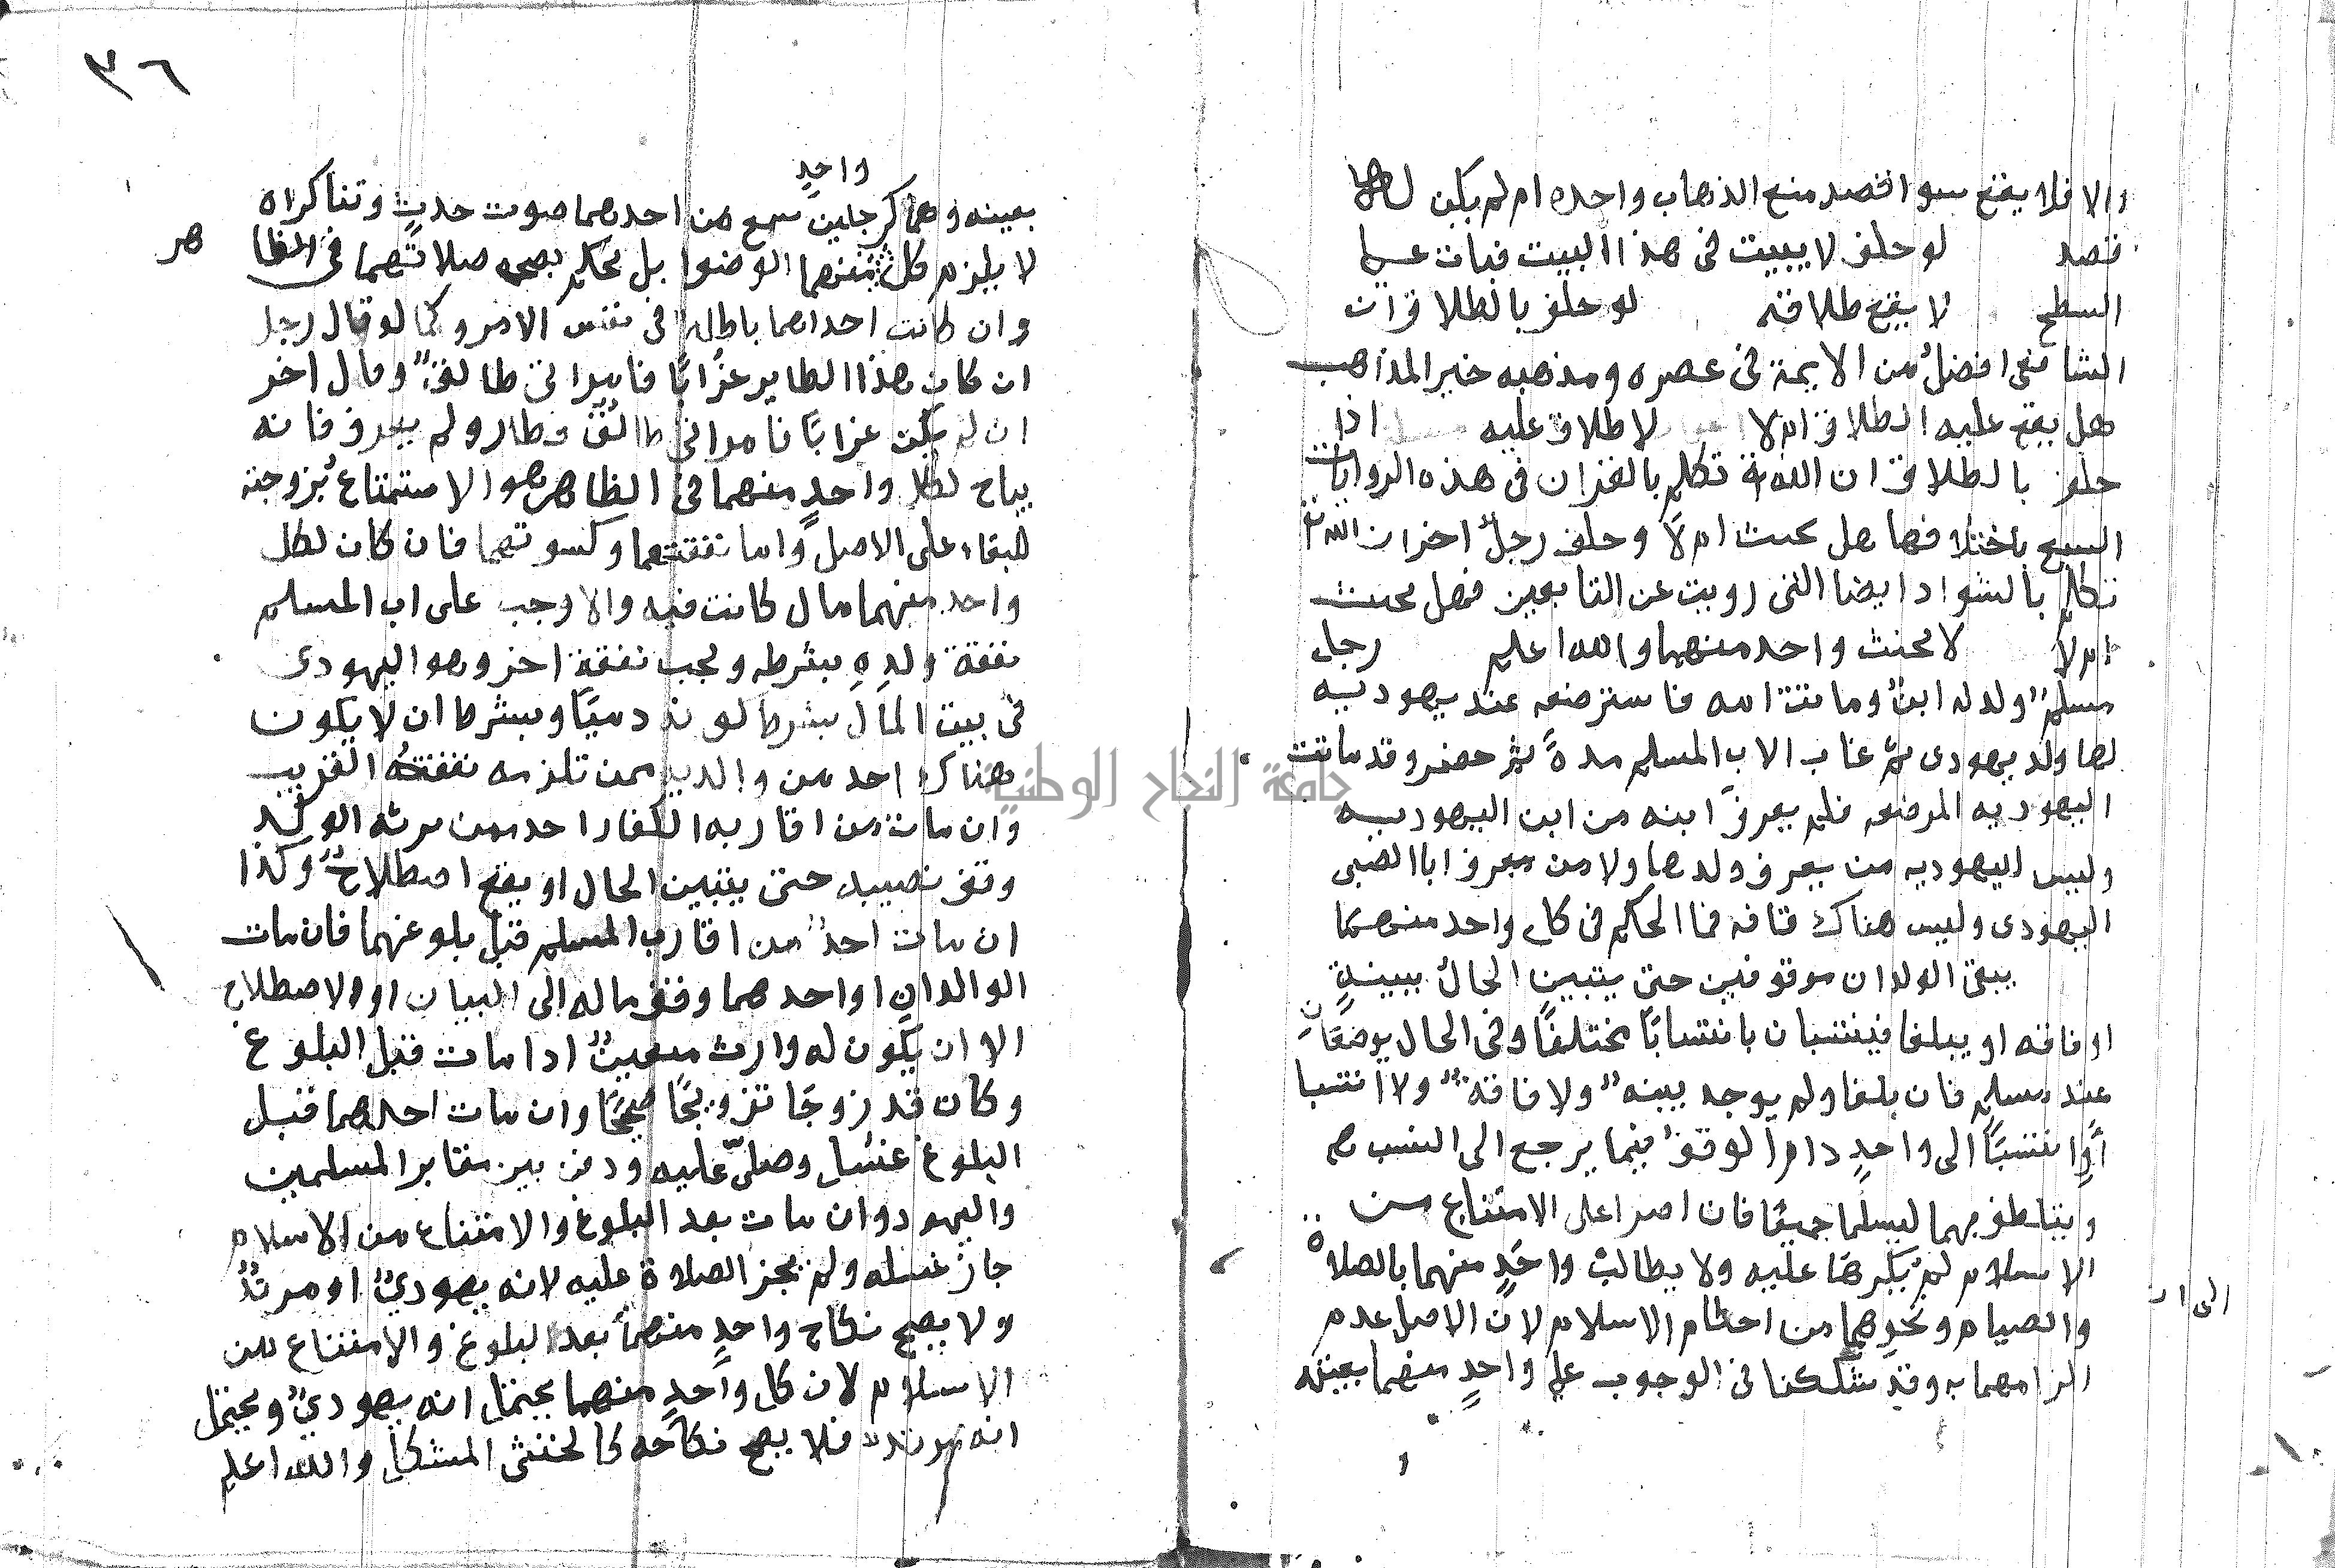 والا فلا يقع سوا قصد منع الذهاب واحده ام لم يكن لها
قصد لو حلف لا يبيت في هذا البيت فبات على
السطح لا يقع طلاقه لو حلف بالطلاق ان
الشافعي افضل من الايمة في عصره ومذهبه خير المذاهب
هل يقع عليه الطلاق ام لا لا طلاق عليه اذا
حلف بالطلاق ان الله تكلم بالقران في هذه الروايات
السبع باختلافها هل يحنث ام لا وحلف رجل اخر ان الله
تكلم بالشواد ايضا التي رويت عن التابعين فهل يحنث
ام لا لا يحنث واحد منهما والله اعلم رجل
مسلم ولد له ابن وماتت امه فاسترضعه عند يهوديه
لها ولد يهودي ثم غاب الاب المسلم مدة ثم حضر وقد ماتت
اليهوديه المرضعه فلم يعرف ابنه من ابن اليهوديه
وليس لليهوديه من يعرف ولدها ولا من يعرف ابا الصبي
اليهودي وليس هناك قافه فما الحكم في كل واحد منهما
يبقى الولدان موقوفين حتى يتبين الحال ببينة
او قافه او يبلغا فينتسبان بانتسابا مختلفا وفي الحال يوضعان
عند مسلم فان بلغا ولم يوجد بينه ولا قافة ولا انتسبا
او انتسبا الى واحد دام الوقف فيما يرجع الى النسب
ويتلطف بهما ليسلما جميعا فان اصرا على الامتناع من
الاسلام لم يكرها عليه ولا يطالب واحد منهما بالصلاة
والصيام ونحوهما من احكام الاسلام لان الاصل عدم
الزامهما به وقد شككنا في الوجوب على واحد منهما بعينه
٣٦
واحد
بعينه وهما كرجلين سمع من احدهما صوت حدث وتناكراه
لا يلزم كل منهما الوضوا بل يحكم بصحه صلاتهما في الظا
هر
وان كانت احداهما باطله في نفس الامر وكما لو قال رجل
ان كان هذا الطاير غرابا فامراتي طالق وقال اخر
ان لم يكن غرابا فامراتي طالق فطار ولم يعرف فانه
يباح لكل واحد منهما في الظاهر هو الاستمتاع بزوجته
للبقاء على الاصل واما نفقتهما وكسوتهما فان كان لكل
واحد منهما مال كانت فيه والا وجب على اب المسلم
نفقة ولده بشرطه ولجب نفقة اخر وهو اليهودى
في بيت المال بشرط كونه دميا وبشرط ان لا يكون
هناك احد من والديه ممن تلزمه نفقته القريب
وان مات من اقاربه الكفار احد ممن يرثه الولد
وقف نصيبه حتى يتبين الحال او يقع اصطلاح وكذا
ان مات احد من اقارب المسلم قبل بلوغهما فان مات
الوالدان او احدهما وقف ماله الى البيان او الاصطلاح
الا ان يكون له وارث معين ادا مات قبل البلوغ
وكان قد زوجا تزويجا صحيحا وان مات احدهما قبل
البلوغ غسل وصلي عليه ودفن بين مقابر المسلمين
واليهود وان مات بعد البلوغ والامتناع من الاسلام
جاز غسله ولم يجز الصلاة عليه لانه يهودي او مرتد
ولا يصح نكاح واحد منهما بعد البلوغ والامتناع من
الاسلام لان كل واحد منهما يحتمل انه يهودي ويحتمل
انه مرتد فلا يصح نكاحه كالخنثى المشكل والله اعلم
جامعة النجاح الوطنية